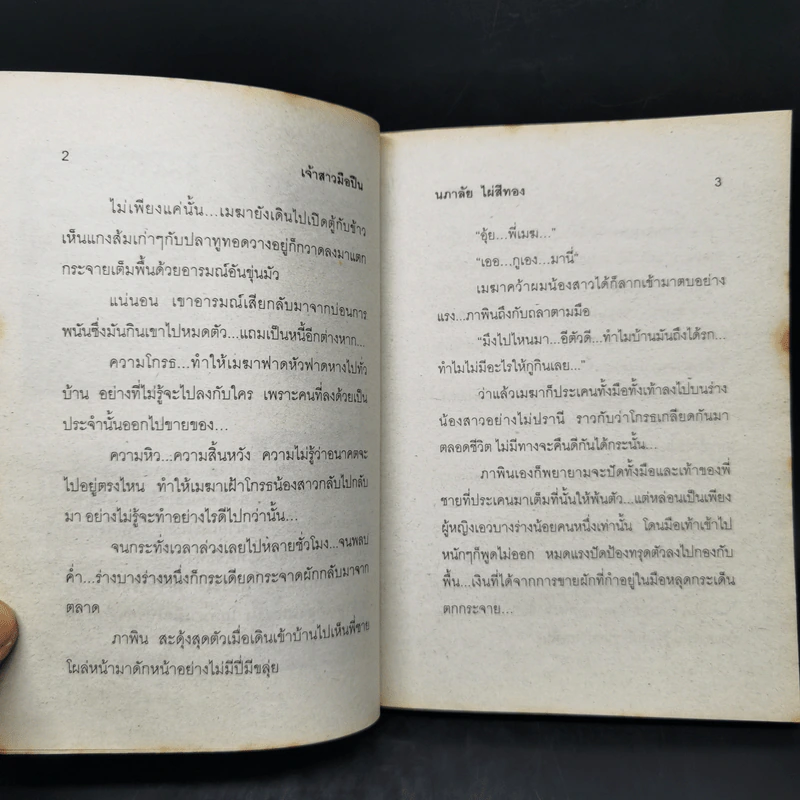 2
เจ้าสาวมือปืน
ไม่เพียงแค่นั้น...เมฆายังเดินไปเปิดตู้กับข้าว
เห็นแกงส้มเก่าๆกับปลาทูทอดวางอยู่ก็กวาดลงมาแตก
กระจายเต็มพื้นด้วยอารมณ์อันขุ่นมัว
แน่นอน เขาอารมณ์เสียกลับมาจากบ่อนการ
พนันซึ่งมันกินเขาไปหมดตัว...แถมเป็นหนี้อีกต่างหาก...
ความโกรธ...ทำให้เมฆาฟาดหัวฟาดหางไปทั่ว
บ้าน อย่างที่ไม่รู้จะไปลงกับใคร เพราะคนที่ลงด้วยเป็น
ประจำนั้นออกไปขายของ...
ความหิว...ความสิ้นหวัง ความไม่รู้ว่าอนาคตจะ
ไปอยู่ตรงไหน ทำให้เมฆาเฝ้าโกรธน้องสาวกลับไปกลับ
มา อย่างไม่รู้จะทำอย่างไรดีไปกว่านั้น...
จนกระทั่งเวลาล่วงเลยไปหลายชั่วโมง...จนพลบ
ค่ำ...ร่างบางร่างหนึ่งก็กระเดียดกระจาดผักกลับมาจาก
ตลาด
ภาพิน สะดุ้งสุดตัวเมื่อเดินเข้าบ้านไปเห็นพี่ชาย
โผล่หน้ามาดักหน้าอย่างไม่มีปี่มีขลุ่ย
นภาลัย ไผ่สีทอง
3
“อุ้ย...พี่เมฆ...”
“เออ...กูเอง...มานี่”
เมฆาคว้าผมน้องสาวได้ก็ลากเข้ามาตบอย่าง
แรง...ภาพินถึงกับถลาตามมือ
“มึงไปไหนมา...อีตัวดี...ทำไมบ้านมันถึงได้รก...
ทำไมไม่มีอะไรให้กูกินเลย...”
ว่าแล้วเมฆาก็ประเคนทั้งมือทั้งเท้าลงไปบนร่าง
น้องสาวอย่างไม่ปรานี ราวกับว่าโกรธเกลียดกันมา
ตลอดชีวิต ไม่มีทางจะคืนดีกันได้กระนั้น...
ภาพินเองก็พยายามจะปัดทั้งมือและเท้าของพี่
ชายที่ประเคนมาเต็มที่นั้นให้พ้นตัว...แต่หล่อนเป็นเพียง
ผู้หญิงเอวบางร่างน้อยคนหนึ่งเท่านั้น โดนมือเท้าเข้าไป
หนักๆก็พูดไม่ออก หมดแรงปัดป้องทรุดตัวลงไปกองกับ
พื้น...เงินที่ได้จากการขายผักที่กำอยู่ในมือหลุดกระเด็น
ตกกระจาย...